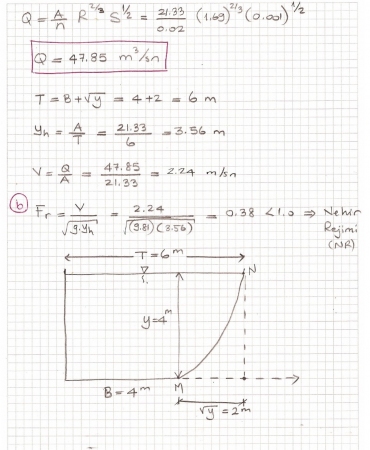 Q = A/n R^2/3 S^1/2 = 21.33/0.02 (1.69)^2/3 (0.001)^1/2
Q = 47.85 m³/sn
T = B+√y = 4+2 = 6 m
yh = A/T = 21.33/6 = 3.56 m
V = Q/A = 47.85/21.33 = 2.24 m/sn
b) Fr = V/√g.yh = 2.24/√(9.81)(3.56) = 0.38 < 1.0 ⇒ Nehir
Rejimi
(NR)
T = 6 m
N
y = 4 m
B = 4 m
M
√y = 2 m